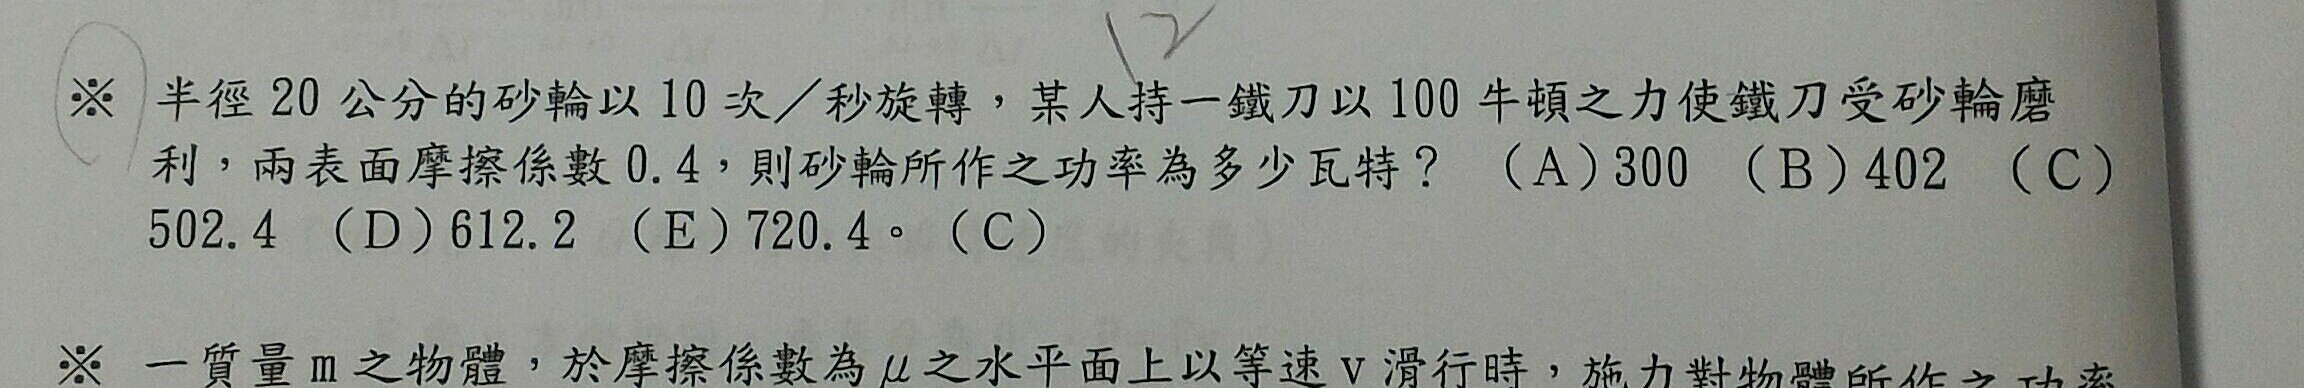 12
※ 半徑 20 公分的砂輪以 10 次／秒旋轉，某人持一鐵刀以 100 牛頓之力使鐵刀受砂輪磨
利，兩表面摩擦係數 0.4，則砂輪所作之功率為多少瓦特？ （A）300 （B）402 （C）
502.4 （D）612.2 （E）720.4。（C）
※ 一質量 m 之物體，於摩擦係數為 μ 之水平面上以等速 v 滑行時，施力對物體所作之功率